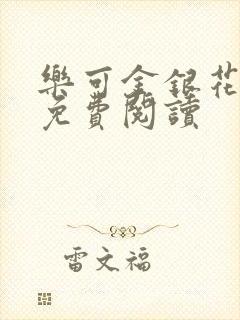 樂可金銀花
免費閱讀
雷文福